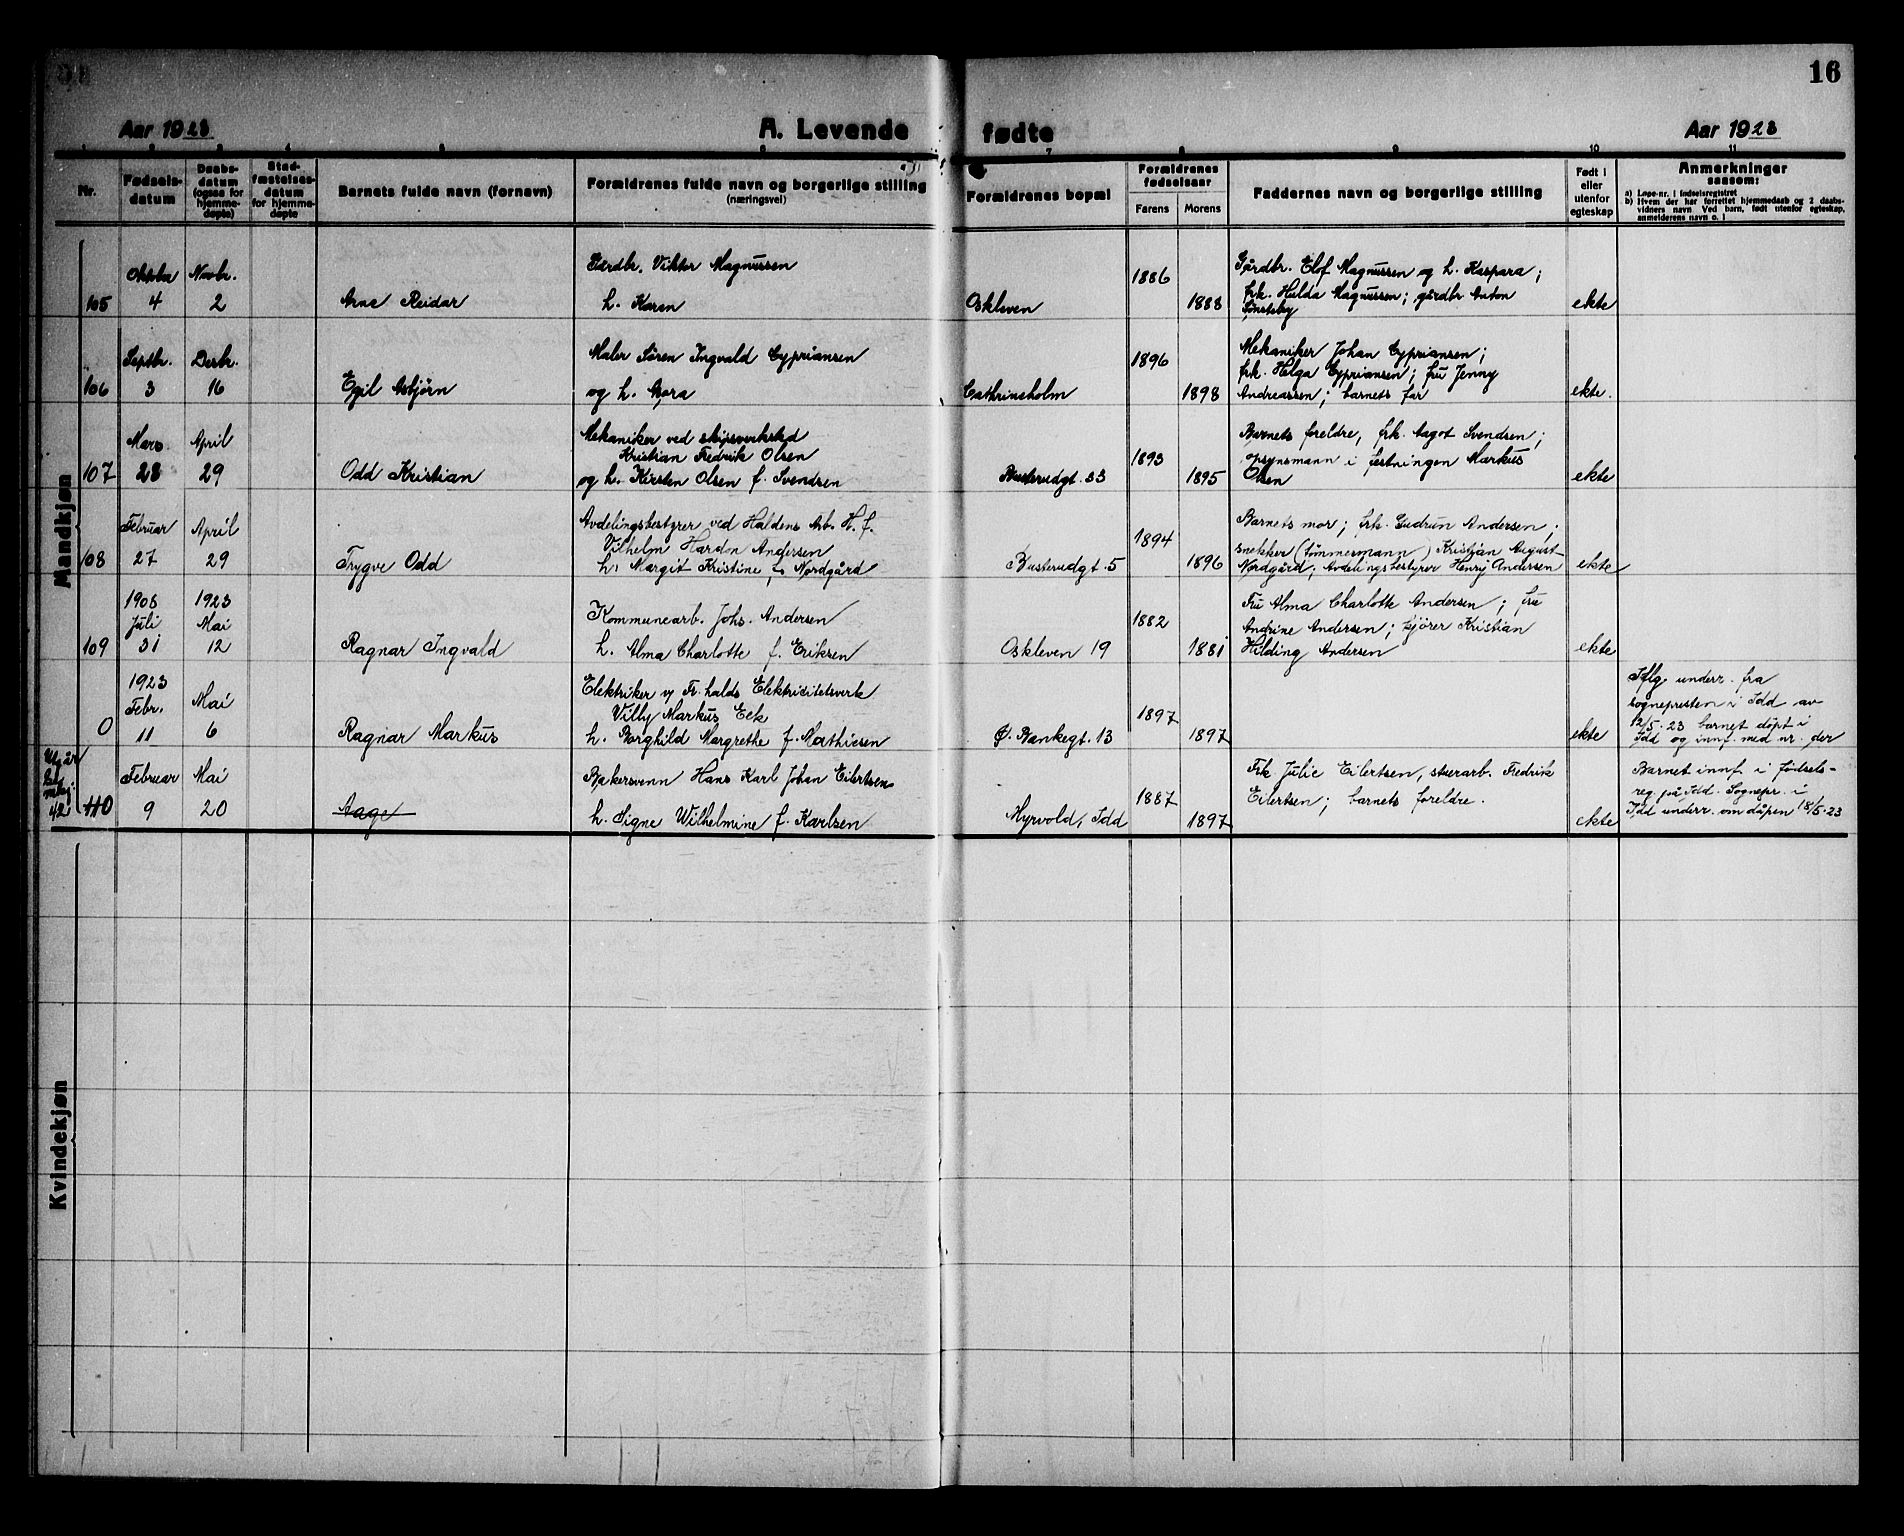 16
Aar 1923
A. Levende
fødte
Aar 1923
1 2 3 4 5 6 7 8 9 10 11
Nr.
Fødsels-
datum
Daabs-
datum
(ogsaa for
hjemme-
døpte)
Stad-
fæstelses-
datum
for hjemme-
døpte
Barnets fulde navn (fornavn)
Forældrenes fulde navn og borgerlige stilling
(næringsvei)
Forældrenes bopæl
Forældrenes
fødselsaar
Farens
Morens
Faddernes navn og borgerlige stilling
Født i
eller
utenfor
egteskap
Anmerkninger
saasom:
a) Løpe-nr. i fødselsregistret
b) Hvem der har forrettet hjemmedaab og 2 daabs-
vidners navn. Ved barn, født utenfor egteskap,
anmelderens navn o. l
Mandkjøn
105
Oktober
4
Novbr.
2
Arne Reidar
Gårdbr. Viktor Magnussen
h. Karen
Oskleven
1886
1888
Gårdbr. Elof Magnussen og h. Kaspara;
frk. Hulda Magnussen; gårdbr Anton
Sønsteby
ekte
106
Septbr.
3
Desbr.
16
Egil Asbjörn
Maler Sören Ingvald Cypriansen
og h. Nora
Cathrinsholm
1896
1898
Mekaniker Johan Cypriansen;
frk. Helga Cypriansen; fru Jenny
Andreassen; barnets far
ekte.
107
Mars
28
April
29
Odd Kristian
Mekaniker ved skipsverksted
Kristian Fredrik Olsen
og h. Kirsten Olsen f. Svendsen
Busterudgt. 33
1893
1895
Barnets foreldre, frk. Aagot Svendsen;
opsynsmann i festningen Markus
Olsen
ekte
108
Februar
27
April
29
Trygve Odd
Avdelingsbestyrer ved Haldens Arb. H. f.
Vilhelm Hardon Andersen
h. Margit Kristine f. Nordgård
Busterudgt. 5
1894
1896
Barnets mor; frk. Gudrun Andersen;
snekker (tømmermann) Kristian August
Nordgård; Avdelingsbestyrer Henry Andersen
ekte
109
1908
Juli
31
1923
Mai
12
Ragnar Ingvald
Kommunearb. Johs. Andersen
h. Alma Charlotte f. Eriksen
Oskleven 19
1882
1881
Fru Alma Charlotte Andersen; fru
Andrine Andersen; kjører Kristian
Hilding Andersen
ekte
0
1923
Febr.
11
Mai
6
Ragnar Markus
Elektriker v/ Fr.halds Elektricitetsverk
Villy Markus Eck
h. Borghild Margrethe f. Mathiesen
Ø. Bankegt. 13
1897
1897
ekte
Iflg underr. fra
sognepresten i Idd av
12/5-23 barnet døpt i
Idd og innf. med nr. der
Utgår
42
110
Februar
9
Mai
20
Aage
Bakersvenn Hans Karl Johan Eilertsen
h. Signe Wilhelmine f. Karlsen
Myrvold, Idd
1887
1897
Frk Julie Eilertsen, stuerarb. Fredrik
Eilertsen; barnets foreldre.
ekte
Barnet innf. i fødsels-
reg. på Idd. Sognepr. i
Idd underr. om dåpen 18/5-23
Kvindekjøn